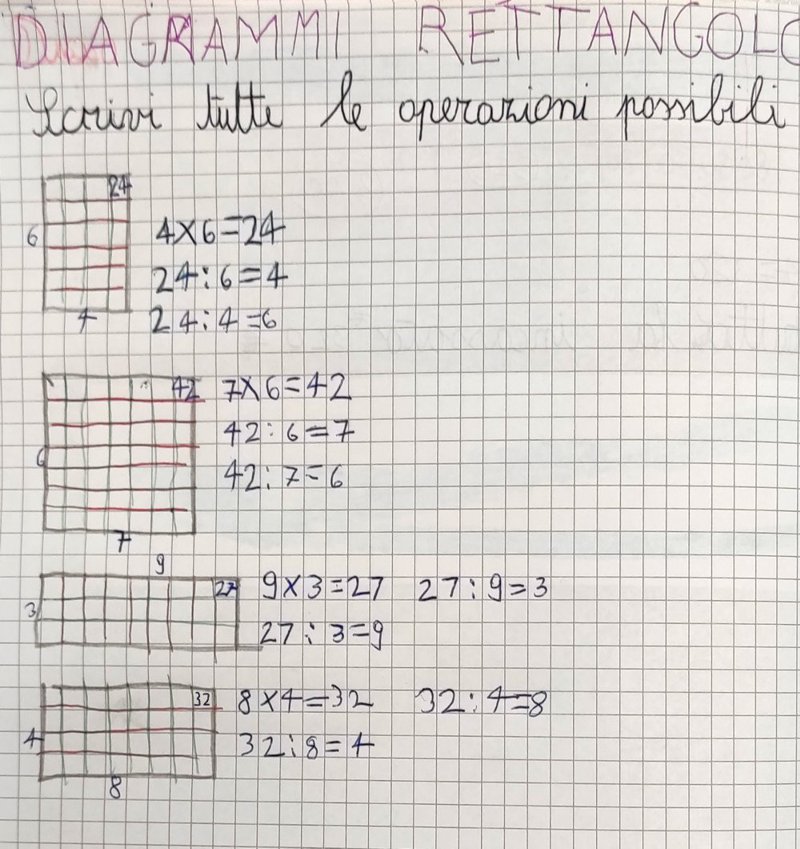 DIAGRAMMI RETTANGOLO
Scrivi tutte le operazioni possibili
24
6
4X6=24
24:6=4
4
24:4=6
42
7X6=42
42:6=7
6
42:7=6
7
9
27
9X3=27 27:9=3
3
27:3=9
32
8X4=32 32:4=8
4
32:8=4
8